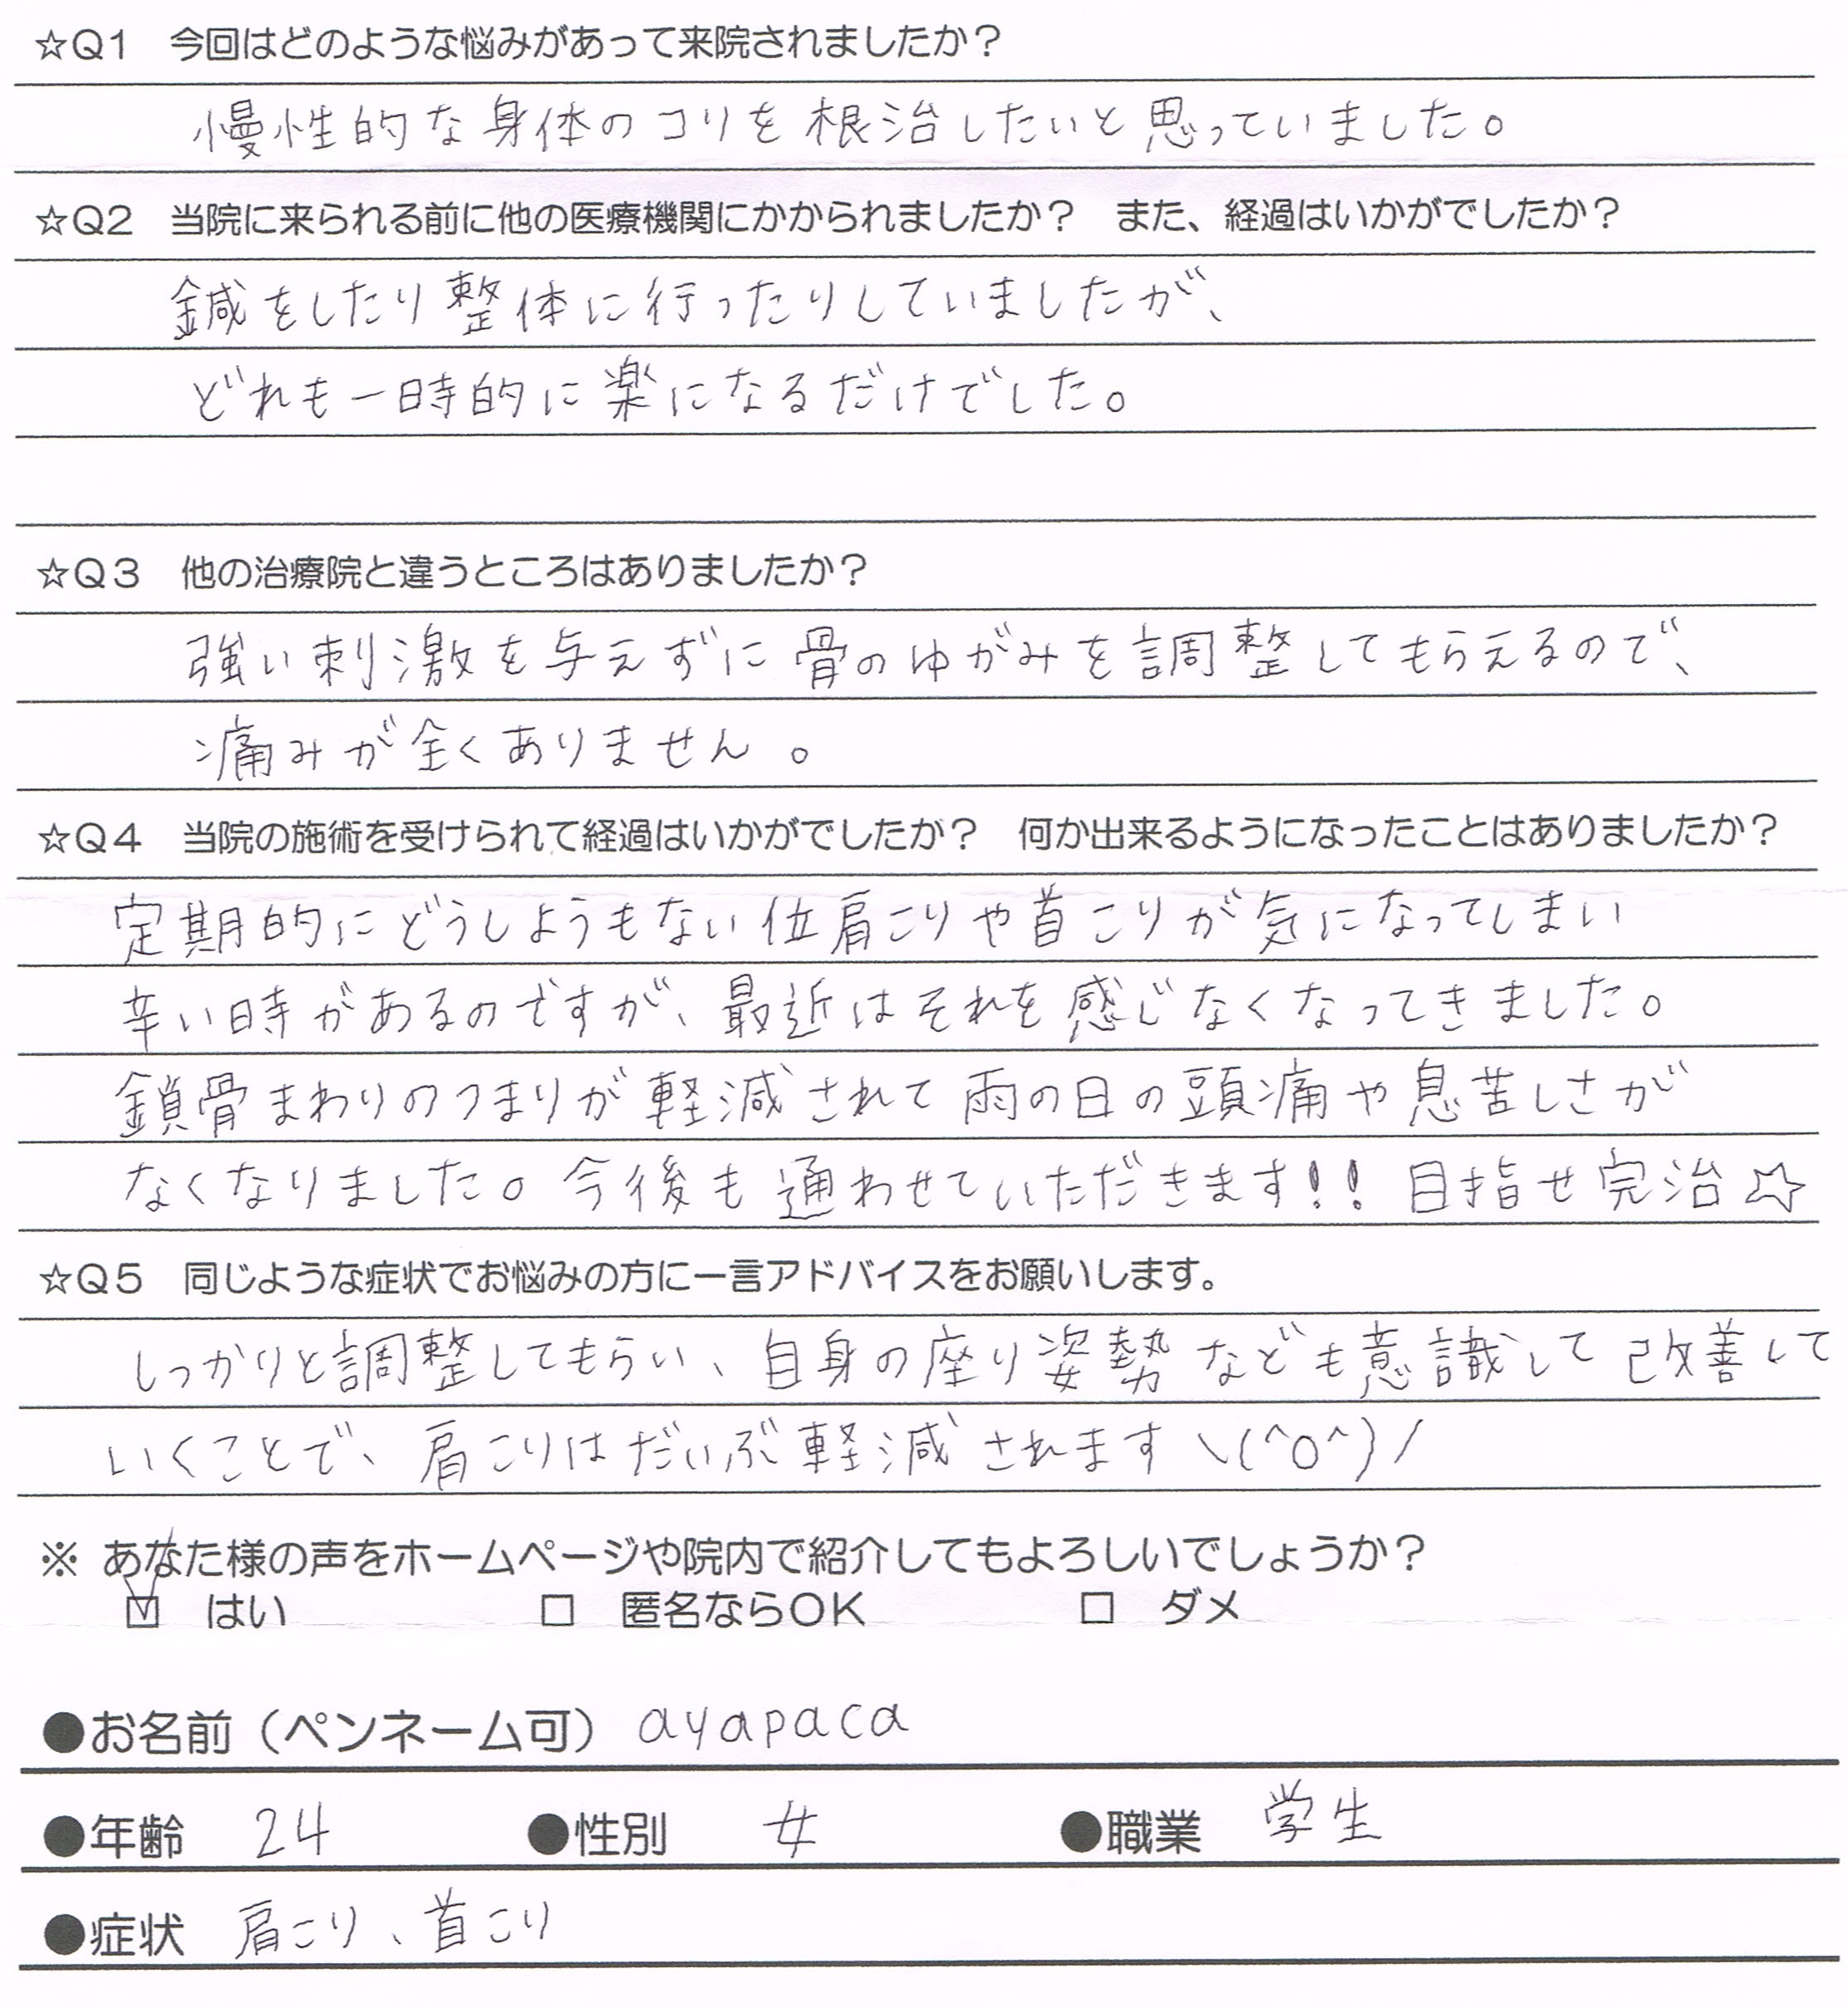 ☆Q1 今回はどのような悩みがあって来院されましたか？
慢性的な身体のコリを根治したいと思っていました。
☆Q2 当院に来られる前に他の医療機関にかかられましたか？ また、経過はいかがでしたか？
鍼をしたり整体に行ったりしていましたが、
どれも一時的に楽になるだけでした。
☆Q3 他の治療院と違うところはありましたか？
強い刺激を与えずに骨のゆがみを調整してもらえるので、
痛みが全くありません。
☆Q4 当院の施術を受けられて経過はいかがでしたか？ 何か出来るようになったことはありましたか？
定期的にどうしようもない位肩こりや首こりが気になってしまい
辛い時があるのですが、最近はそれを感じなくなってきました。
鎖骨まわりのつまりが軽減されて雨の日の頭痛や息苦しさが
なくなりました。今後も通わせていただきます!! 目指せ完治☆
☆Q5 同じような症状でお悩みの方に一言アドバイスをお願いします。
しっかりと調整してもらい、自身の座り姿勢なども意識して改善して
いくことで、肩こりはだいぶ軽減されます＼(^O^)／
※ あなた様の声をホームページや院内で紹介してもよろしいでしょうか？
☑ はい □ 匿名ならOK □ ダメ
●お名前（ペンネーム可） ayapaca
●年齢 24 ●性別 女 ●職業 学生
●症状 肩こり、首こり